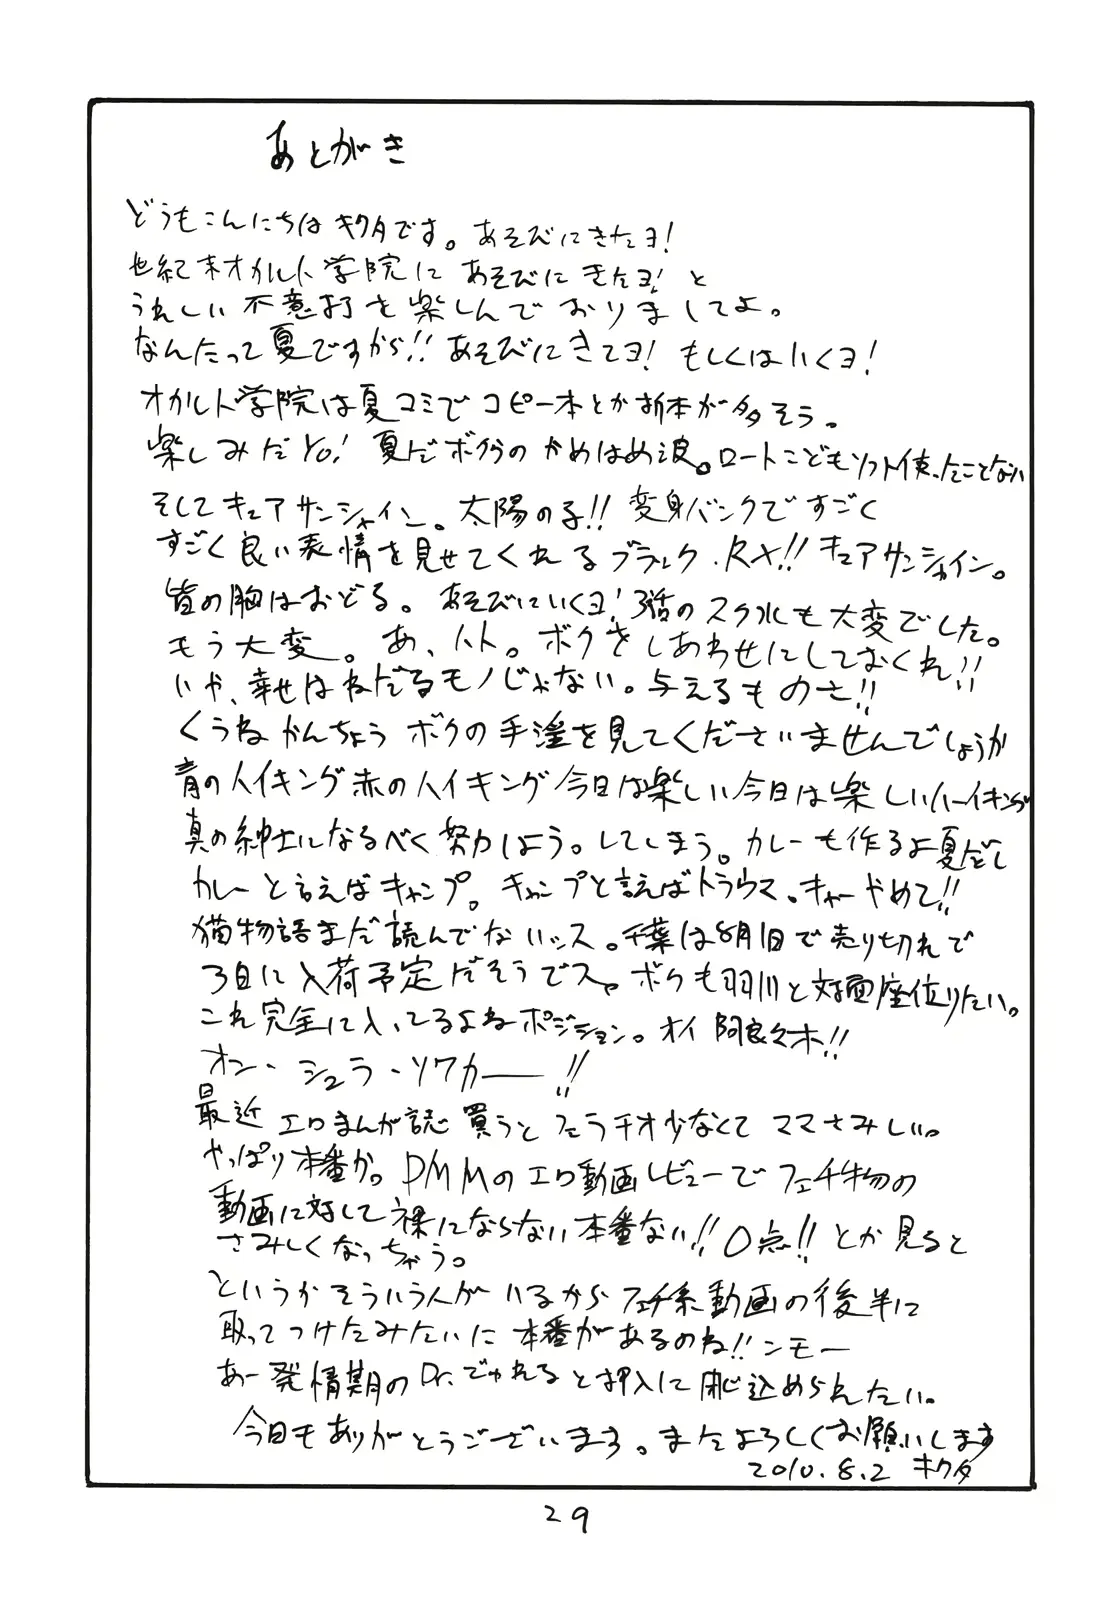 あとがき
どうもこんにちはキクタです。あそびにきたヨ!
世紀末オカルト学院にあそびにきたヨ!と
うれしい不意打を楽しんでおりましてよ。
なんたって夏ですから!!あそびにきてヨ!もしくはいくヨ!
オカルト学院は夏コミでコピー本とか折本が多そう。
楽しみだYo!夏だボクらのかめはめ波。ロートこどもソフト使ったことない
そしてキュアサンシャイン。太陽の子!!変身バンクですごく
すごく良い表情を見せてくれるブラック.RX!!キュアサンシャイン。
皆の胸はおどる。あそびにいくヨ!3話のスク水も大変でした。
もう大変。あ、ハト。ボクをしあわせにしておくれ!!
いや、幸せはねだるモノじゃない。与えるものさ!!
くうねかんちょうボクの手淫を見てくださいませんでしょうか
青のハイキング赤のハイキング今日は楽しい今日は楽しいハーイキング
真の紳士になるべく努力しよう。してしまう。カレーも作るよ夏だし
カレーと言えばキャンプ。キャンプと言えばトラウマ。キャーやめて!!
猫物語まだ読んでないッス。千葉は8月1日で売り切れで
3日に入荷予定だそうでス。ボクも羽川と対面座位りたい。
これ完全に入ってるよねポジション。オイ阿良々木!!
オン・シュラ・ソワカー!!
最近エロまんが誌買うとフェラチオ少なくてママさみしい。
やっぱり本番か。DMMのエロ動画レビューでフェチ物の
動画に対して裸にならない本番ない!!0点!!とか見ると
さみしくなっちゃう。
というかそういう人がいるからフェチ系動画の後半に
取ってつけたみたいに本番があるのね!!ンモー
あー発情期のDr.でゅれると押入に閉じ込められたい。
今日もありがとうございます。またよろしくお願いします
2010.8.2 キクタ
29